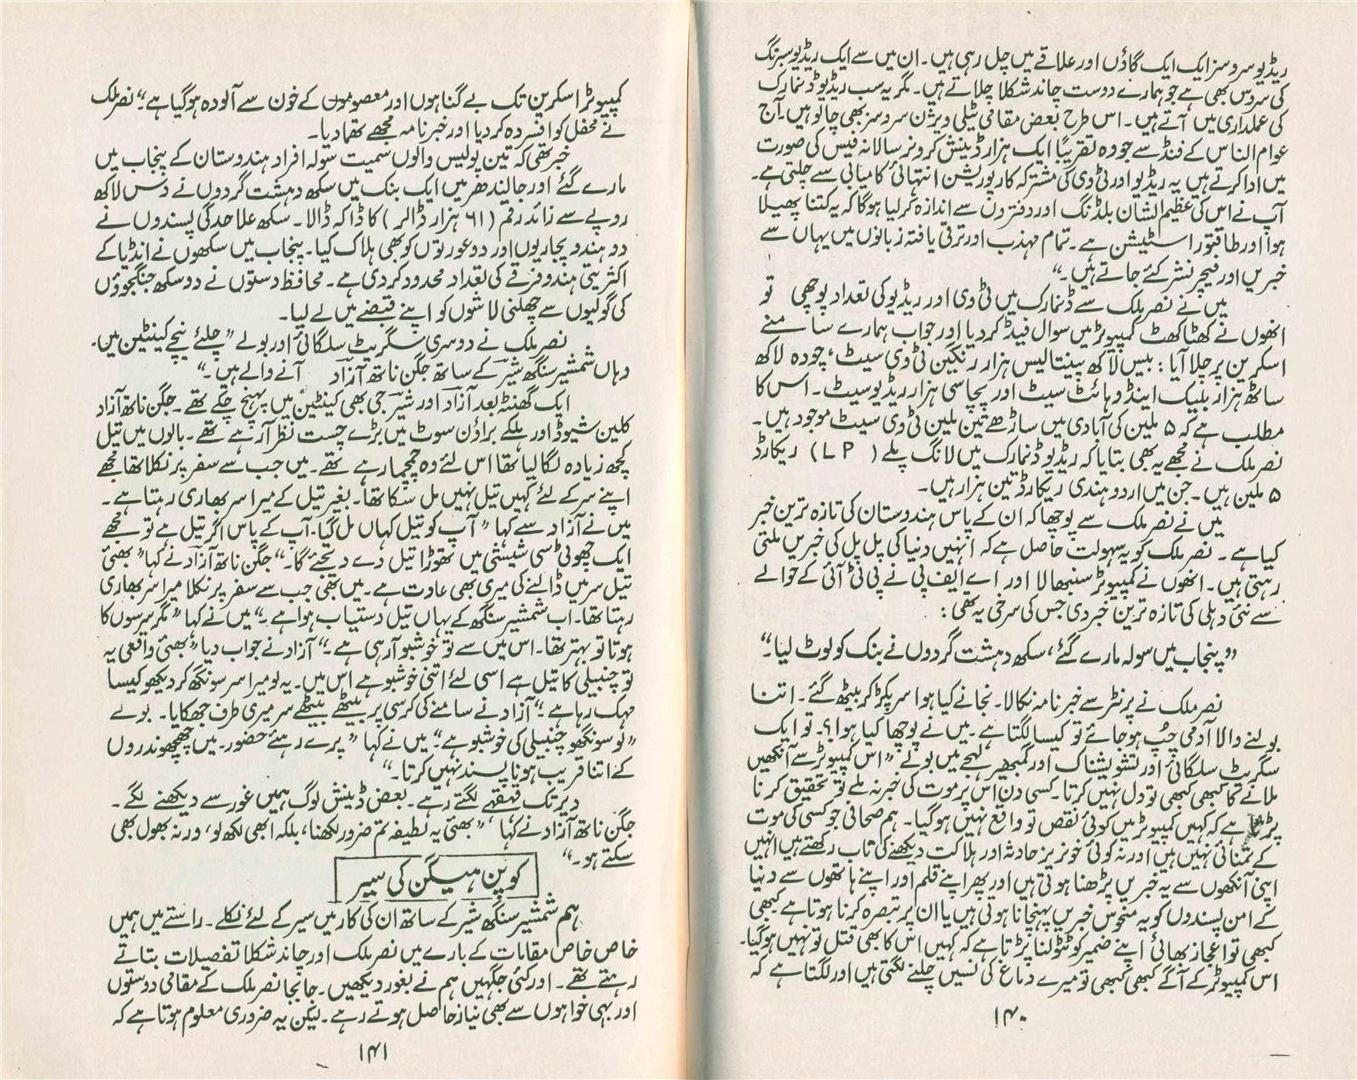 ریڈیو سروسز ایک ایک گاؤں اور علاقے میں چل رہی ہیں۔ ان میں سے ایک ریڈیو سبرنگ
کی سروس بھی ہے جو ہمارے دوست چاند شکلا چلاتے ہیں۔ مگر یہ سب ریڈیو ڈنمارک
کی عملداری میں آتے ہیں۔ اس طرح بعض مقامی ٹیلی ویژن سروسز بھی چالو ہیں۔ آج
عوام الناس کے فنڈ سے جو وہ تقریباً ایک ہزار ڈینش کرونر سالانہ فیس کی صورت
میں ادا کرتے ہیں یہ ریڈیو اور ٹی وی کی مشترکہ کارپوریشن انتہائی کامیابی سے چلتی ہے۔
آپ نے اس کی عظیم الشان بلڈنگ اور دفتروں سے اندازہ کر لیا ہوگا کہ یہ کتنا پھیلا
ہوا اور طاقتور اسٹیشن ہے۔ تمام مہذب اور ترقی یافتہ زبانوں میں یہاں سے
خبریں اور فیچر نشر کئے جاتے ہیں۔“
میں نے نصر ملک سے ڈنمارک میں ٹی وی اور ریڈیو کی تعداد پوچھی تو
انھوں نے کھٹا کھٹ کمپیوٹر میں سوال فیڈ کر دیا اور جواب ہمارے سامنے
اسکرین پر جلا آیا: بیس لاکھ پینتالیس ہزار رنگین ٹی وی سیٹ، چودہ لاکھ
ساٹھ ہزار بلیک اینڈ وہائٹ سیٹ اور پچاسی ہزار ریڈیو سیٹ۔ اس کا
مطلب ہے کہ ۵ ملین کی آبادی میں ساڑھے تین ملین ٹی وی سیٹ موجود ہیں۔
نصر ملک نے مجھے یہ بھی بتایا کہ ریڈیو ڈنمارک میں لانگ پلے (LP) ریکارڈ
۵ ملین ہیں۔ جن میں اردو ہندی ریکارڈ تین ہزار ہیں۔
میں نے نصر ملک سے پوچھا کہ ان کے پاس ہندوستان کی تازہ ترین خبر
کیا ہے۔ نصر ملک کو یہ سہولت حاصل ہے کہ انہیں دنیا کی پل پل کی خبریں ملتی
رہتی ہیں۔ انھوں نے کمپیوٹر سنبھالا اور اے ایف پی نے پی ٹی آئی کے حوالے
سے نئی دہلی کی تازہ ترین خبر دی جس کی سرخی یہ تھی:
”پنجاب میں سولہ مارے گئے، سکھ دہشت گردوں نے بنک کو لوٹ لیا۔“
نصر ملک نے پرنٹر سے خبر نامہ نکالا۔ نجانے کیا ہوا سر پکڑ کر بیٹھ گئے۔ اتنا
بولنے والا آدمی چُپ ہو جائے تو کیسا لگتا ہے۔ میں نے پوچھا کیا ہوا؟ تو ایک
سگریٹ سلگائی اور تشویشناک اور گمبھیر لہجے میں بولے ”اس کمپیوٹر سے آنکھیں
ملانے کا کبھی کبھی تو دل نہیں کرتا۔ کسی دن اس پر موت کی خبر نہ ملے تو تحقیق کرنا
پڑتا ہے کہ کہیں کمپیوٹر میں کوئی نقص تو واقع نہیں ہو گیا۔ ہم صحافی جو کسی کی موت
کے تمنائی نہیں ہیں اور نہ کوئی خونریز حادثہ اور ہلاکت دیکھنے کی تاب رکھتے ہیں انہیں
اپنی آنکھوں سے یہ خبریں پڑھنا ہوتی ہیں اور پھر اپنے قلم اور اپنے ہاتھوں سے دنیا
کے امن پسندوں کو یہ منحوس خبریں پہنچانا ہوتی ہیں یا ان پر تبصرہ کرنا ہوتا ہے کبھی
کبھی تو اعجاز بھائی اپنے ضمیر کو ٹٹولنا پڑتا ہے کہ کہیں اس کا بھی قتل تو نہیں ہو گیا۔
اس کمپیوٹر کے آگے کبھی کبھی تو میرے دماغ کی نسیں چلنے لگتی ہیں اور لگتا ہے کہ
۱۴۰
کمپیوٹر اسکرین تک بے گناہوں اور معصوموں کے خون سے آلودہ ہو گیا ہے۔“ نصر ملک
نے محفل کو افسردہ کر دیا اور خبر نامہ مجھے تھما دیا۔
خبر تھی کہ تین پولیس والوں سمیت سولہ افراد ہندوستان کے پنجاب میں
مارے گئے اور جالندھر میں ایک بنک میں سکھ دہشت گردوں نے دس لاکھ
روپے سے زائد رقم (۶۱ ہزار ڈالر) کا ڈاکہ ڈالا۔ سکھ علاحدگی پسندوں نے
دو ہندو پجاریوں اور دو عورتوں کو بھی ہلاک کیا۔ پنجاب میں سکھوں نے انڈیا کے
اکثریتی ہندو فرقے کی تعداد محدود کر دی ہے۔ محافظ دستوں نے دو سکھ جنگجوؤں
کی گولیوں سے چھلنی لاشوں کو اپنے قبضے میں لے لیا۔
نصر ملک نے دوسری سگریٹ سلگائی اور بولے ”چلئے نیچے کینٹین میں۔
وہاں شمشیر سنگھ شیرؔ کے ساتھ جگن ناتھ آزادؔ آنے والے ہیں۔“
ایک گھنٹہ بعد آزادؔ اور شیرؔ جی بھی کینٹین میں پہنچ چکے تھے۔ جگن ناتھ آزاد
کلین شیوڈ اور ہلکے براؤن سوٹ میں بڑے چست نظر آ رہے تھے۔ بالوں میں تیل
کچھ زیادہ لگا لیا تھا اس لئے وہ چمچما رہے تھے۔ میں جب سے سفر پر نکلا تھا مجھے
اپنے سر کے لئے کہیں تیل نہیں مل سکا تھا۔ بغیر تیل کے میرا سر بھاری رہتا ہے۔
میں نے آزاد سے کہا ”آپ کو تیل کہاں مل گیا۔ آپ کے پاس اگر تیل ہے تو مجھے
ایک چھوٹی سی شیشی میں تھوڑا تیل دے دیجئے گا۔“ جگن ناتھ آزادؔ نے کہا ”بھئی
تیل سر میں ڈالنے کی میری بھی عادت ہے۔ میں بھی جب سے سفر پر نکلا میرا سر بھاری
رہتا تھا۔ اب شمشیر سنگھ کے یہاں تیل دستیاب ہوا ہے۔“ میں نے کہا ”مگر سرسوں کا
ہوتا تو بہتر تھا۔ اس میں سے تو خوشبو آ رہی ہے۔“ آزاد نے جواب دیا ”بھئی واقعی یہ
تو چنبیلی کا تیل ہے اسی لئے اتنی خوشبو ہے اس میں۔ یہ لو میرا سر سونگھ کر دیکھو کیسا
مہک رہا ہے۔“ آزاد نے سامنے کی کرسی پر بیٹھے بیٹھے سر میری طرف جھکایا۔ بولے
”لو سونگھو چنبیلی کی خوشبو ہے“ میں نے کہا ”پرے رہئے حضور۔ میں چھچھوندروں
کے اتنا قریب ہونا پسند نہیں کرتا۔“
دیر تک قہقہے لگتے رہے۔ بعض ڈینش لوگ ہمیں غور سے دیکھنے لگے۔
جگن ناتھ آزاد نے کہا ”بھئی یہ لطیفہ تم ضرور لکھنا، بلکہ ابھی لکھ لو، ورنہ بھول بھی
سکتے ہو۔“
کوپن ہیگن کی سیر
ہم شمشیر سنگھ شیرؔ کے ساتھ ان کی کار میں سیر کے لئے نکلے۔ راستے میں ہمیں
خاص خاص مقامات کے بارے میں نصر ملک اور چاند شکلا تفصیلات بتاتے
رہتے تھے۔ اور کئی جگہیں ہم نے بغور دیکھیں۔ جا بجا نصر ملک کے مقامی دوستوں
اور بہی خواہوں سے بھی نیاز حاصل ہوتے رہے۔ لیکن یہ ضروری معلوم ہوتا ہے کہ
۱۴۱